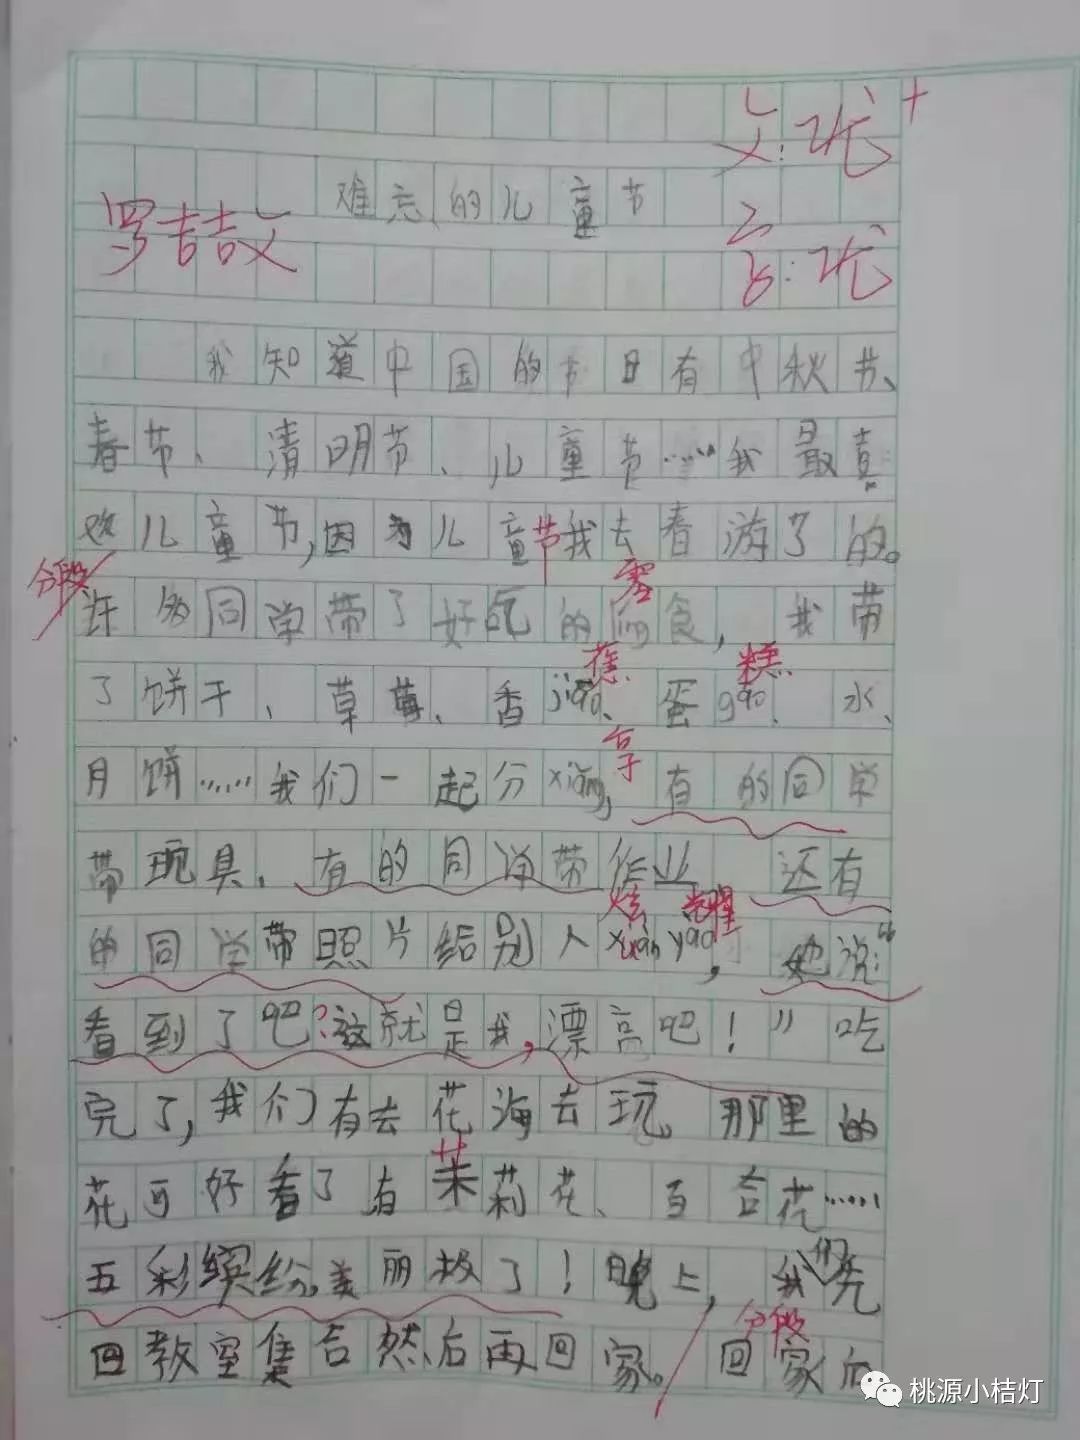 文:优+
难忘的儿童节
罗喆文
字:优
我知道中国的节日有中秋节、
春节、清明节、儿童节……我最喜
欢儿童节,因为儿童节我去春游了的。
分段
零
许多同学带了好吃的食,我带
蕉 糕
了饼干、草莓、香jiāo、蛋gāo、水、
享
月饼……我们一起分xiǎng,有的同学
带玩具、有的同学带作业 还有
炫耀
的同学带照片给别人xuàn yào,她说:“
看到了吧?这就是我,漂亮吧!”吃
完了,我们有去花海去玩 那里的
花可好看了有茉莉花、百合花……
五彩缤纷,美丽极了!晚上,我们先
分段
回教室集合然后再回家。回家后
桃源小桔灯